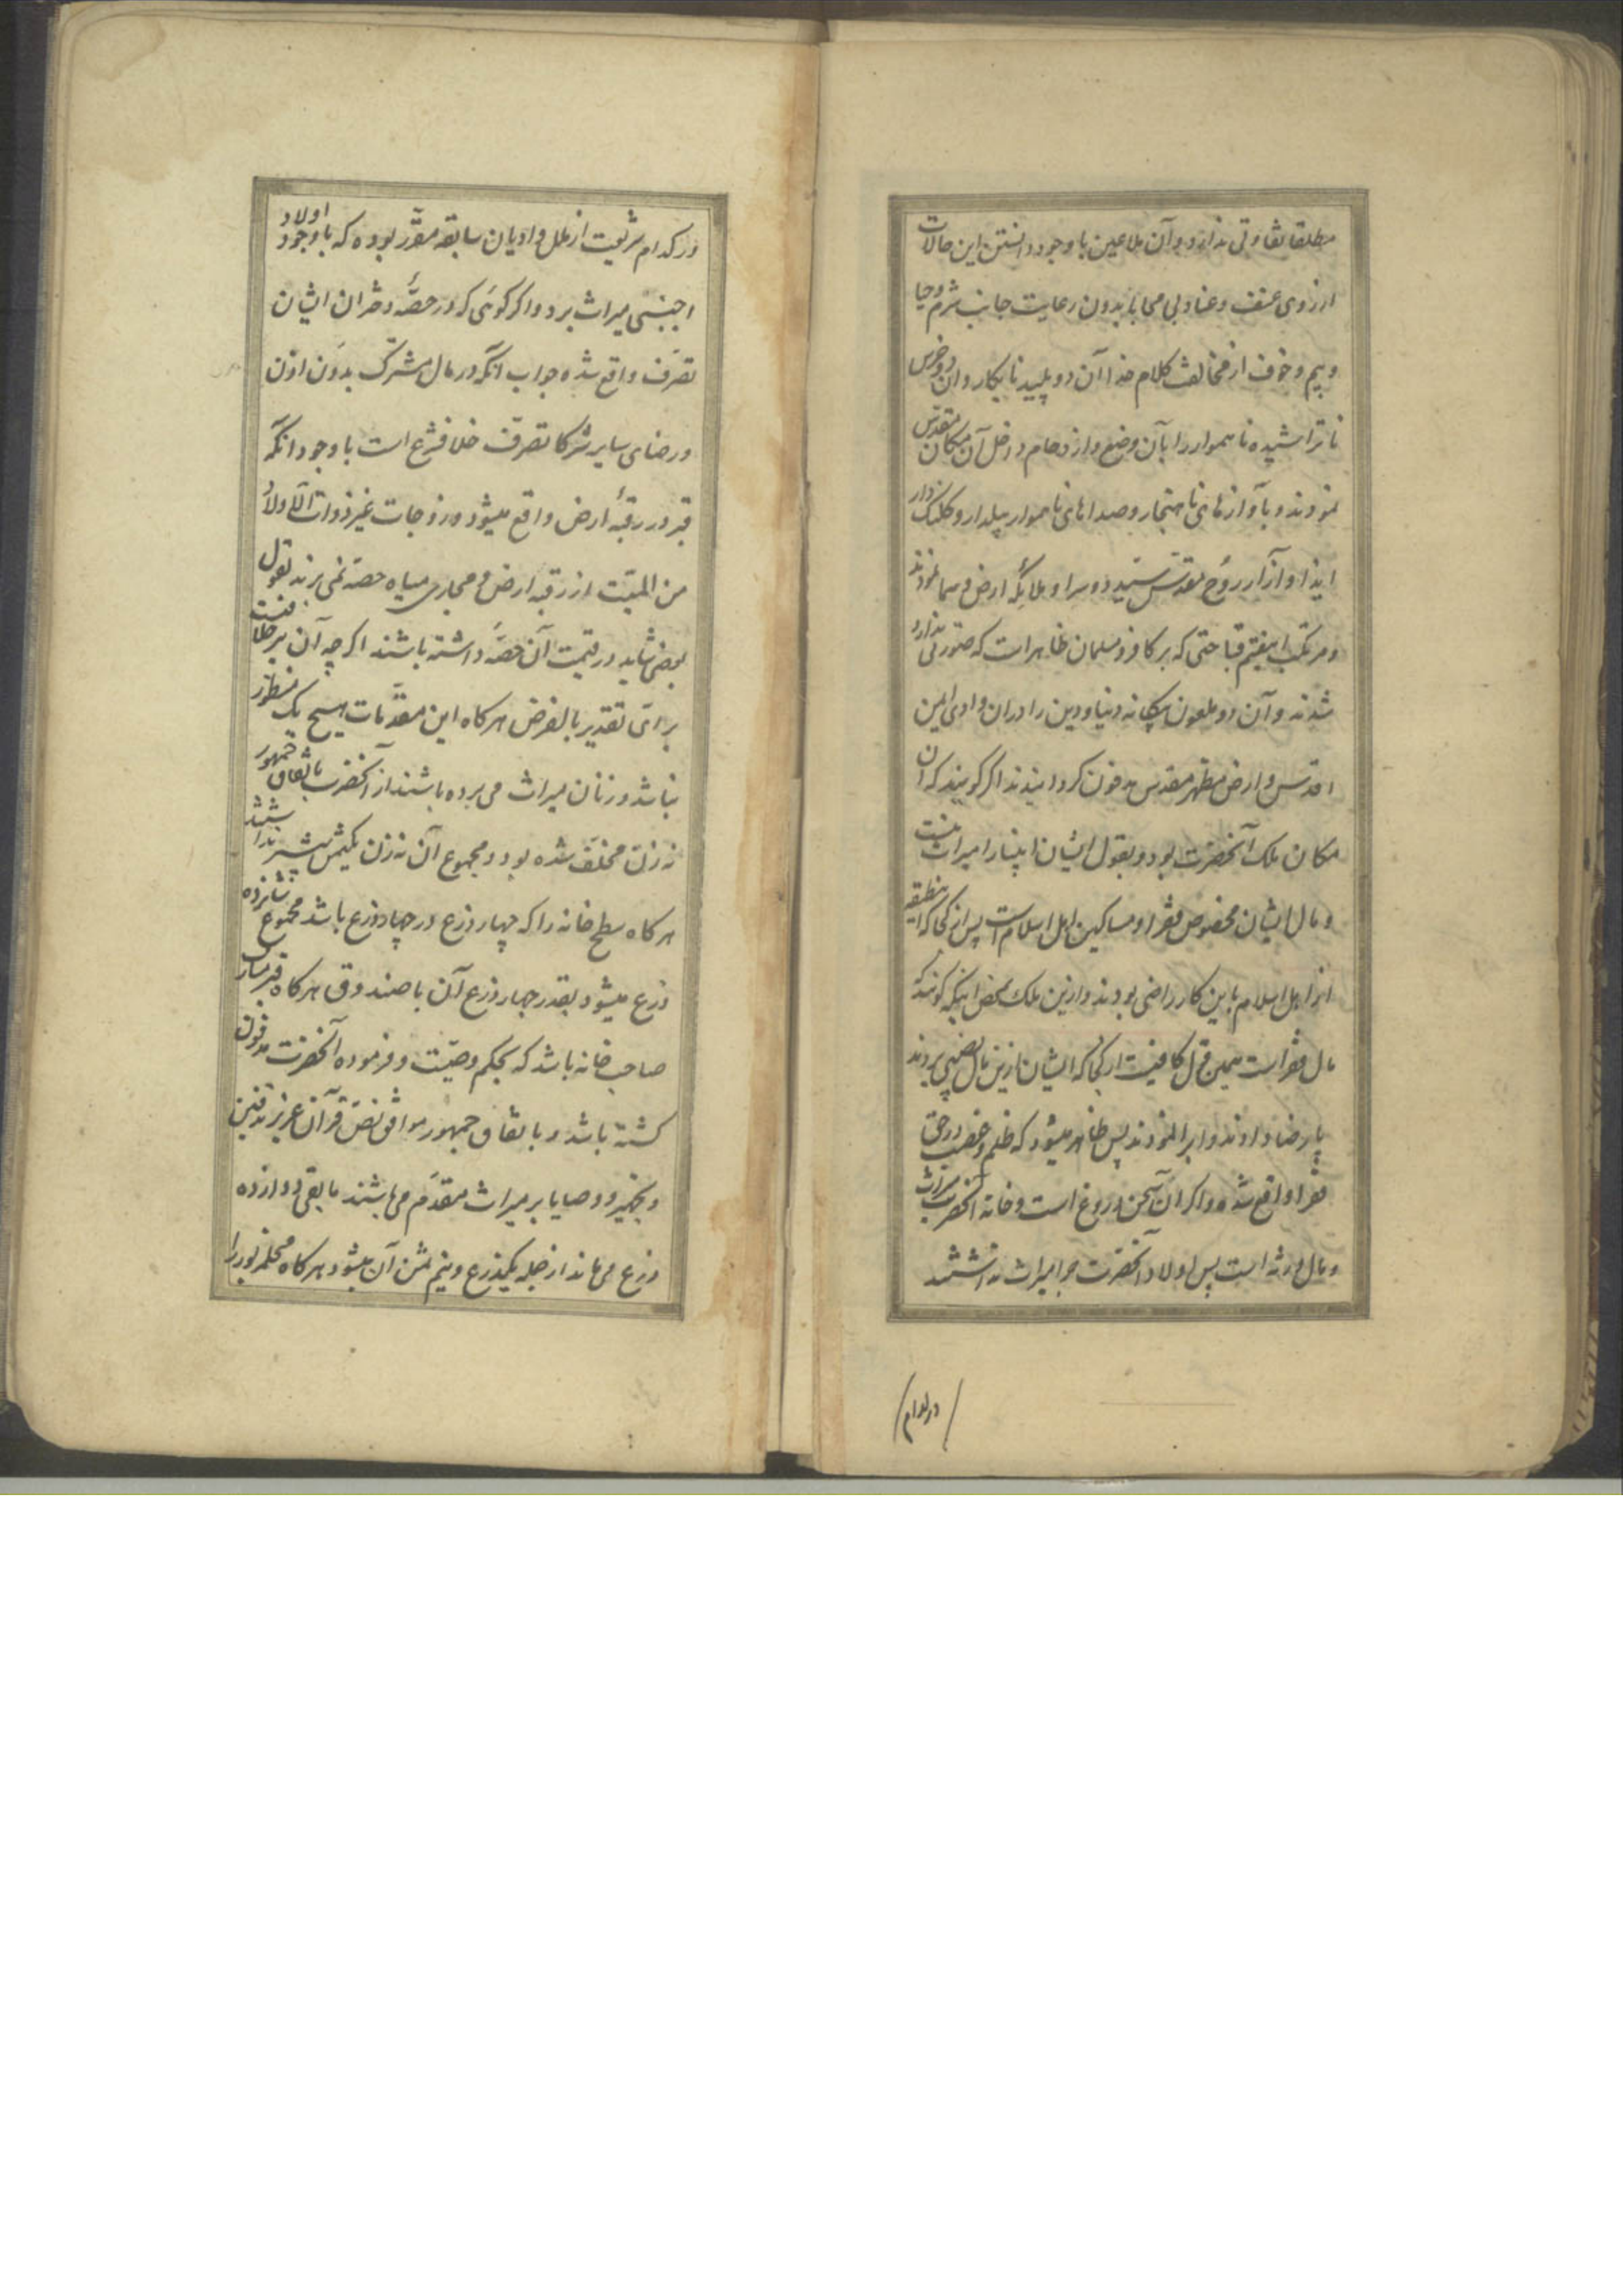 مطلقا تفاوتی ندارد و آن ملاعین با وجود دانستن این حالات
از روی عنف و عناد بی محابا بدون رعایت جانب شرم و حیا
و بیم و خوف از مخالفت کلام خدا آن دو پلید نابکار و آن دو خرس
ناتراشیده ناهموار را بآن وضع و ازدحام داخل آن مکان مقدس
نمودند و بآوازهای ناهنجار و صداهای ناهموار بیلدار و کلنک دار
ایذا و آزار روح مقدس سید دوسرا و ملایکه ارض و سما نمودند
و مرتکب اینقسم قباحتی که بر کافر و مسلمان ظاهر است که صورتی ندارد
شدند و آن دو ملعون بیکانه دنیا و دین را در ان وادی ایمن
اقدس و ارض مطهر مقدس مدفون کردانیدند اکر کویند که آن
مکان ملک آنحضرت بود و بقول ایشان انبیا را میراث نیست
و مال ایشان مخصوص فقرا و مساکین اهل اسلام است پس از کجا که
از اهل اسلام باین کار راضی بودند و ازین ملک محض اینکه کویند که
مال فقراست همین قول کافیست از کجا که ایشان ازین مال نصیبی بردند
یا رضا دادند و ابرا نمودند پس ظاهر میشود که ظلم و غصب در حق
فقرا واقع شده و اکر آن سخن دروغ است و خانه آنحضرت میراث
و مال ورثه است پس اولاد آنحضرت چرا میراث نداشتند
در کدام
در کدام شریعت از ملل و ادیان سابقه مقرر بوده که با وجود اولاد
اجنبی میراث برد و اکر کوئی که در حصّه دختران ایشان
تصرف واقع شده جواب آنکه در مال مشترک بدون اذن
و رضای سایر شرکا تصرف خلاف شرع است با وجود انکه
قبر در رقبهٔ ارض واقع میشود و زوجات غیر ذوات الاولاد
من المیّت از رقبه ارض و مجاری میاه حصّه نمی برند بقول
بعضی شاید در قیمت آن حصّه داشته باشند اکر چه آن نیز خلافست
برای تقدیر بالفرض هر کاه این مقدّمات هیچ یک منظور
نباشد و زنان میراث می برده باشند از آنحضرت باتفاق جمهور
نه زن مخلّف شده بود و مجموع آن نه زن یکثمن بیشتر نداشتند
هر کاه سطح خانه را که چهار ذرع در چهار ذرع باشد مجموع شانزده
ذرع میشود بقدر چهار ذرع آن با صندوق هر کاه قبر مبارک
صاحب خانه باشد که بحکم وصیّت و فرموده آنحضرت مدفون
کشته باشد و باتفاق جمهور موافق نصّ قرآن عزیز تدفین
و تجهیز و وصایا بر میراث مقدّم می باشند مابقی دوازده
ذرع می ماند از جمله یکذرع و نیم ثمن آن میشود هر کاه محل مزبور را